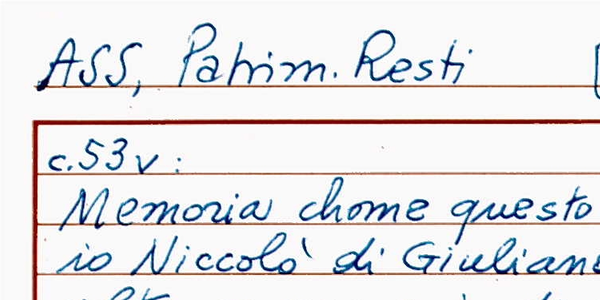 ASS, Patrim. Resti
c.53v:
Memoria chome questo
io Niccolò di Giuliano